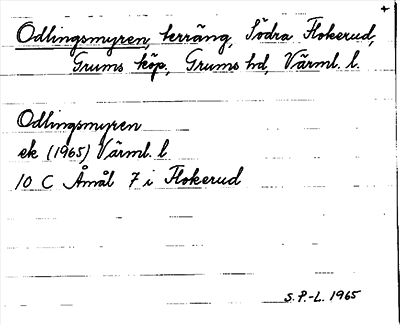 +
Odlingsmyren, terräng, Södra Flokerud,
Grums köp., Grums hd, Värml. l.
Odlingsmyren
ek (1965) Värml. l
10 C Åmål 7 i Flokerud
S.P.-L. 1965